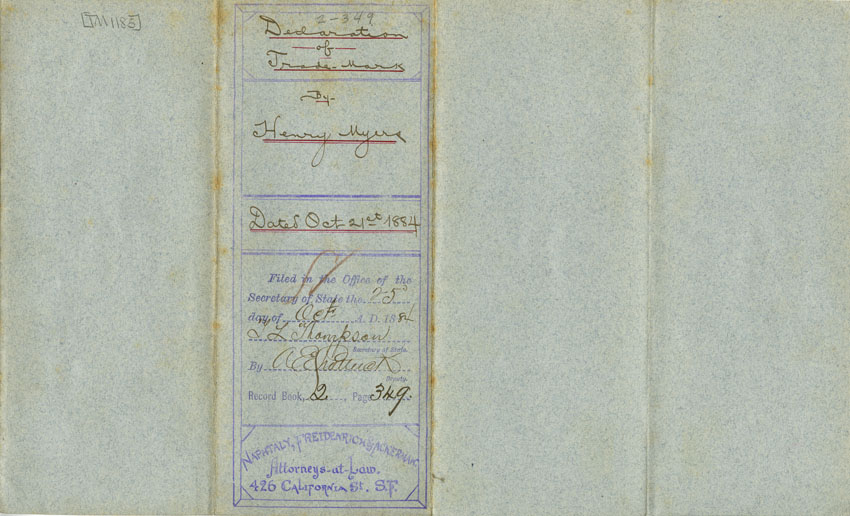 [TM1185]
2-349
Declaration
of
Trade-Mark
By-
Henry Myers
Dated Oct 21st 1884
Filed in the Office of the
Secretary of State the 25
day of Oct A. D. 1884
T L Thompson
Secretary of State.
By A E Shattuck
Deputy.
Record Book, 2 Page 349
NAPHTALY, FREIDENRICH & ACKERMAN,
Attorneys-at-Law.
426 CALIFORNIA St. S.F.